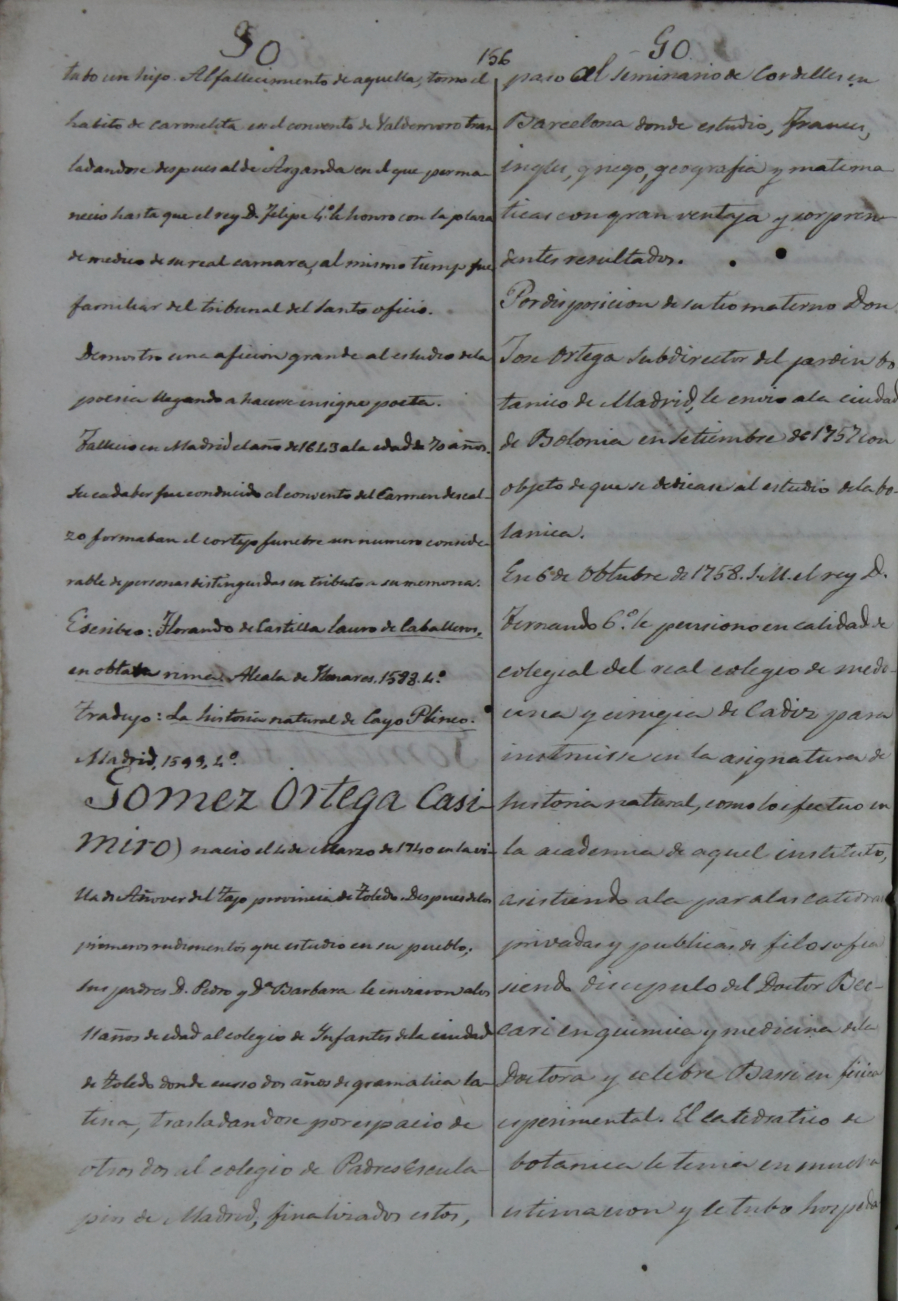 GO
156
GO
tubo un hijo. Al fallecimiento de aquella, tomo el
habito de carmelita en el convento de Valdemoro tras
ladandose despues al de Arganda en el que perma-
necio hasta que el rey D. Felipe 4.º le honro con la plaza
de medico de su real camara, al mismo tiempo fue
familiar del tribunal del santo oficio.
Demostro una aficion grande al estudio de la
poesia llegando a hacerse insigne poeta.
Fallecio en Madrid el año de 1643 a la edad de 70 años.
Su cadaber fue conducido al convento del Carmen descal-
zo formaban el cortejo funebre un numero conside-
rable de personas distinguidas en tributo a su memoria.
Escribio: Florando de Castilla lauro de Caballeros,
en obtaba rima. Alcala de Henares. 1588. 4.º
Tradujo: La historia natural de Cayo Plinio.
Madrid, 1599, 4.º
Gomez Ortega Casi-
miro) nacio el 4 de Marzo de 1740 en la vi-
lla de Añover del Tajo provincia de Toledo. Despues de los
primeros rudimentos que estudio en su pueblo,
sus padres D. Pedro y D.ª Barbara le enviaron a los
11 años de edad al colegio de Infantes de la ciudad
de Toledo donde curso dos años de gramatica la-
tina, trasladandose por espacio de
otros dos al colegio de Padres Escula-
pios de Madrid, finalizados estos,
paso al seminario de Cordelles en
Barcelona donde estudio, frances,
ingles, griego, geografia y matema
ticas con gran ventaja y sorpren-
dentes resultados.
Por disposicion de su tio materno Don
Jose Ortega subdirector del jardin bo
tanico de Madrid, le envio a la ciudad
de Bolonia en Setiembre de 1757 con
objeto de que se dedicase al estudio de la bo-
tanica.
En 6 de Obtubre de 1758. S. M. el rey D.
Fernando 6.º le pensiono en calidad de
colegial del real colegio de medi-
cina y cirugia de Cadiz para
instruirse en la asignatura de
historia natural, como lo efectuo en
la academia de aquel instituto,
asistiendo a la par a las catedras
privadas y publicas de filosofia
siendo discipulo del Doctor Bec-
cari en quimica y medicina de la
Doctora y celebre Bassi en fisica
esperimental. El catedratico de
botanica le tenia en mucha
estimacion y le tubo hospeda